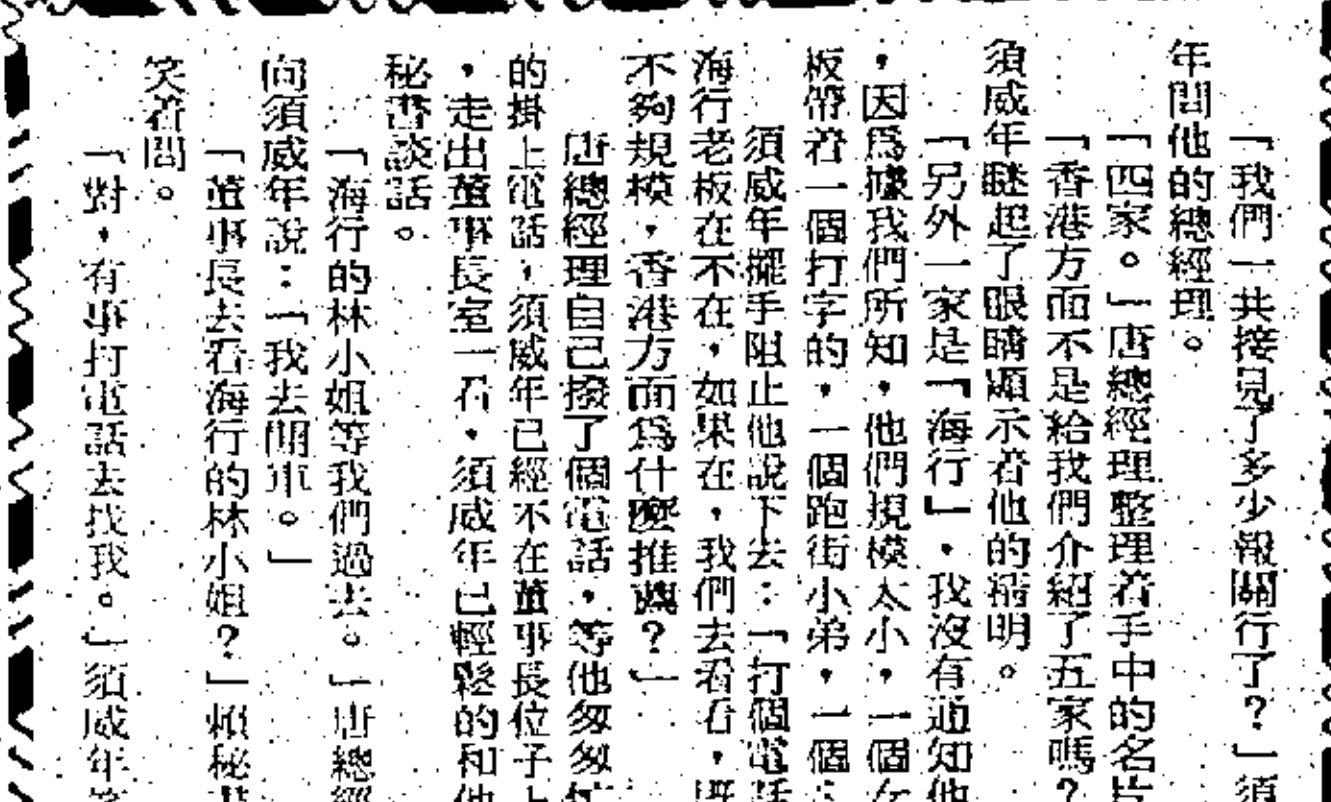 「我們一共接見了多少報關行了？」須
年問他的總經理。
「四家。」唐總經理整理着手中的名片
「香港方面不是給我們介紹了五家嗎？
須威年瞇起了眼睛顯示着他的精明。
「另外一家是「海行」，我沒有通知他
，因爲據我們所知，他們規模太小，一個女
板帶着一個打字的，一個跑街小弟，一個
須威年擺手阻止他說下去：「打個電話
海行老板在不在，如果在，我們去看看，既
不夠規模，香港方面爲什麼推薦？」
唐總經理自己撥了個電話，等他匆匆忙
的掛上電話，須威年已經不在董事長位子上
，走出董事長室一看，須威年已輕鬆的和他
秘書談話。
「海行的林小姐等我們過去。」唐總經
向須威年說：「我去開車。」
「董事長去看海行的林小姐？」賴秘書
笑着問。
「對，有事打電話去找我。」須威年笑